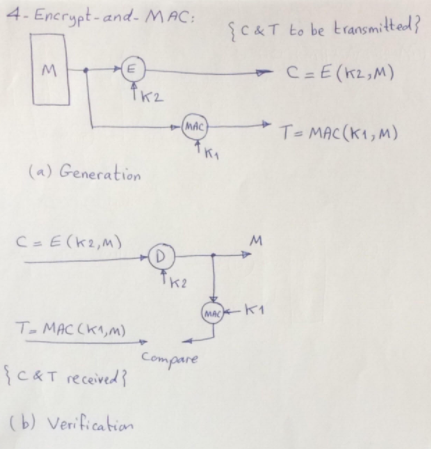 4- Encrypt-and-MAC:
{C & T to be transmitted}
M
E
C = E(K2, M)
K2
MAC
T = MAC(K1, M)
K1
(a) Generation
C = E(K2, M)
D
M
K2
MAC
K1
T = MAC(K1, M)
Compare
{C & T received}
(b) Verification